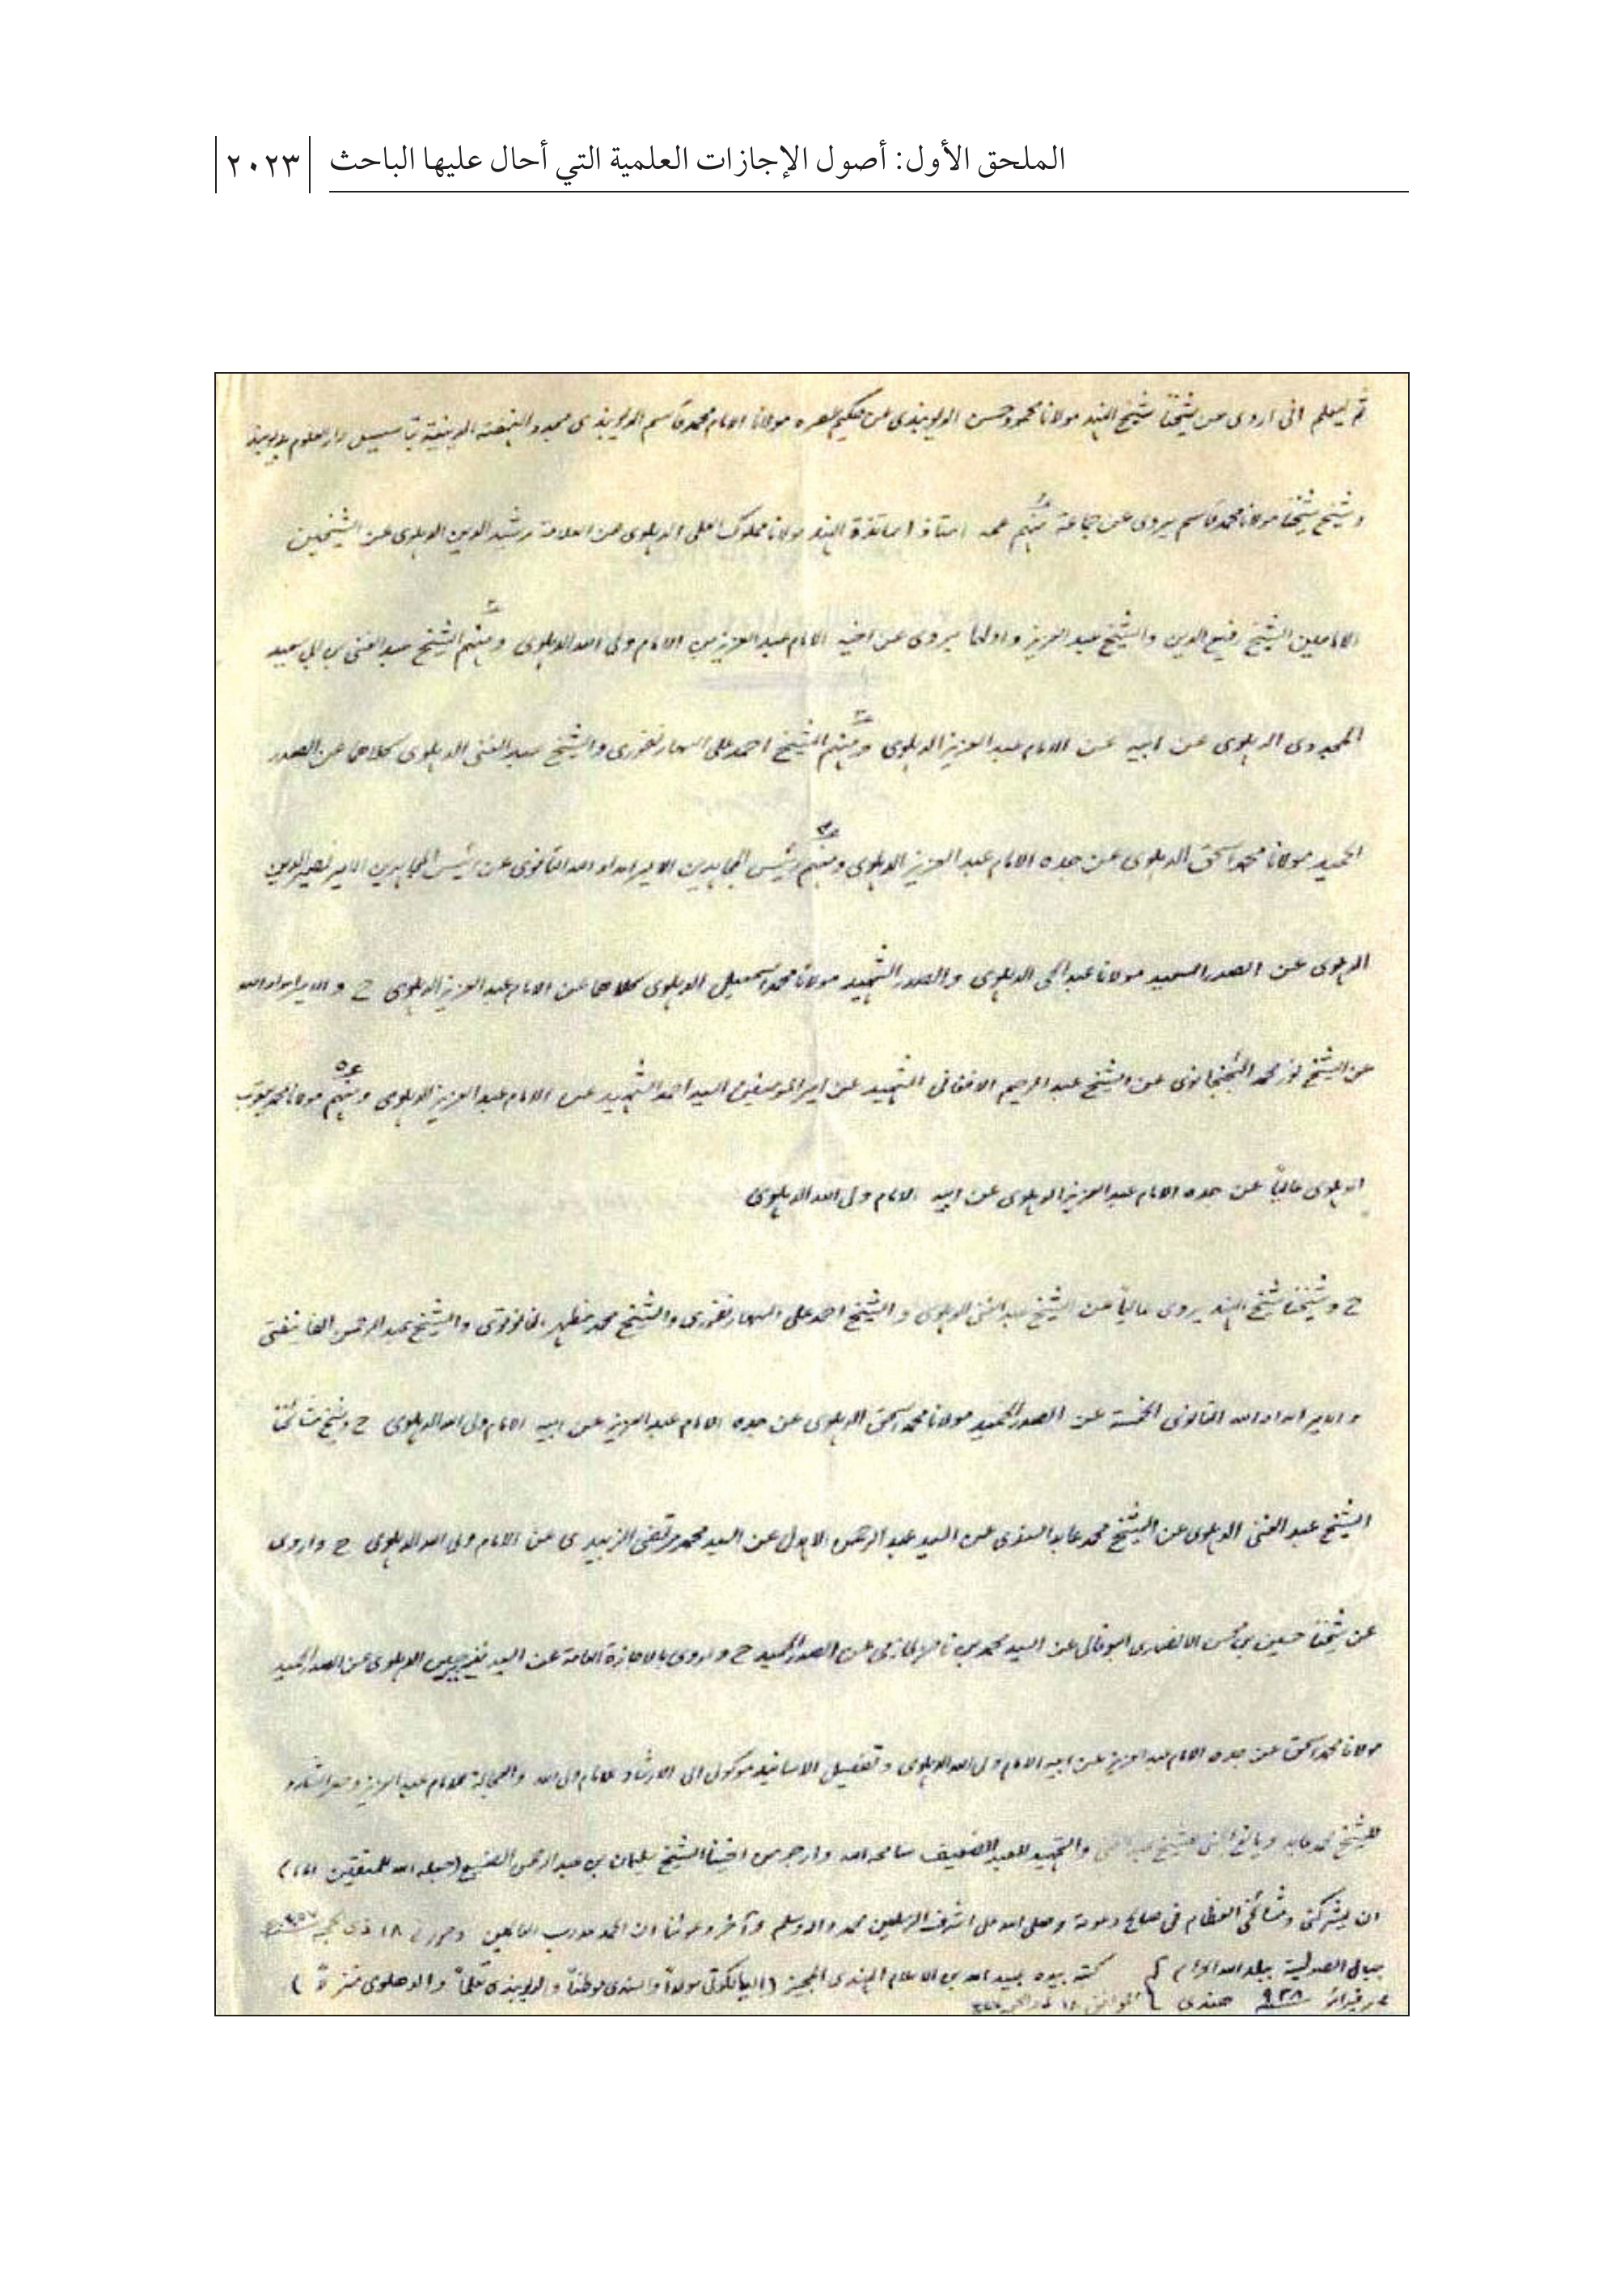 الملحق الأول: أصول الإجازات العلمية التي أحال عليها الباحث
٢٠٢٣
ثم ليعلم انى اروى عن شيخنا شيخ الهند مولانا محمود حسن الديوبندى عن حكيم عصره مولانا الامام محمد قاسم الديوبندى مجدد النهضة الدينية بتأسيس دار العلوم بديوبند
وشيخ شيخنا مولانا محمد قاسم يروى عن جماعة منهم عمه استاذ اساتذة الهند مولانا مملوك العلى الدهلوى عن العلامة رشيد الدين الدهلوى عن الشيخين
الامامين الشيخ رفيع الدين والشيخ عبد العزيز واولهما يروى عن اخيه الامام عبد العزيز عن الامام ولى الله الدهلوى ومنهم الشيخ عبد الغنى بن ابى سعيد
المجددى الدهلوى عن ابيه عن الامام عبد العزيز الدهلوى ومنهم الشيخ احمد على السهارنفورى والشيخ عبد الغنى الدهلوى كلاهما عن الصدر
الحميد مولانا محمد اسحق الدهلوى عن جده الامام عبد العزيز الدهلوى ومنهم رئيس المجاهدين الامير امداد الله التانوى عن رئيس المجاهدين الامير نصير الدين
الدهلوى عن الصدر السعيد مولانا عبد الحى الدهلوى والصدر الشهيد مولانا محمد اسمعيل الدهلوى كلاهما عن الامام عبد العزيز الدهلوى ح والامير امداد الله
عن الشيخ نور محمد الجهنجانوى عن الشيخ عبد الرحيم الافغانى الشهيد عن امير المومنين السيد احمد الشهيد عن الامام عبد العزيز الدهلوى ومنهم مولانا محمد يعقوب
الدهلوى عاليا عن جده الامام عبد العزيز الدهلوى عن ابيه الامام ولى الله الدهلوى
ح وشيخنا شيخ الهند يروى عاليا عن الشيخ عبد الغنى الدهلوى والشيخ احمد على السهارنفورى والشيخ محمد مظهر النانوتوى والشيخ عبد الرحمن الفانيفتى
والامير امداد الله التانوى الخمسة عن الصدر الحميد مولانا محمد اسحق الدهلوى عن جده الامام عبد العزيز عن ابيه الامام ولى الله الدهلوى ح وشيخ مشائخنا
الشيخ عبد الغنى الدهلوى عن الشيخ محمد عابد السندى عن السيد عبد الرحمن الاهدل عن السيد محمد مرتضى الزبيدى عن الامام ولى الله الدهلوى ح واروى
عن شيخنا حسين بن محسن الانصارى البوفالى عن السيد محمد بن ناصر الحازمى عن الصدر الحميد ح واروى بالاجازة العامة عن السيد نذير حسين الدهلوى عن الصدر الحميد
مولانا محمد اسحق عن جده الامام عبد العزيز عن ابيه الامام ولى الله الدهلوى وتفصيل الاسانيد موكول الى الارشاد للامام ولى الله والعجالة للامام عبد العزيز وحصر الشارد
للشيخ محمد عابد واليانع الجنى للشيخ عبد الغنى والتمهيد للعبد الضعيف سامحه الله وارجو من اخينا الشيخ سليمان بن عبد الرحمن الصنيع (جعله الله للمتقين اماما)
ان يشركنى ومشائخى العظام فى صالح دعوته وصلى الله على اشرف المرسلين محمد واله وسلم وآخر دعوانا ان الحمد لله رب العالمين وحرر فى ١٨ ذى الحجه
بجبال الصولتية ببلد الله الحرام كتبه بيده عبيد الله بن الاسلام الهندى المجيز (السيالكوتى مولدا والسندى موطنا والديوبندى تعلما والدهلوى)
فبراير ٩٣٨ هندى الموافق ١٨